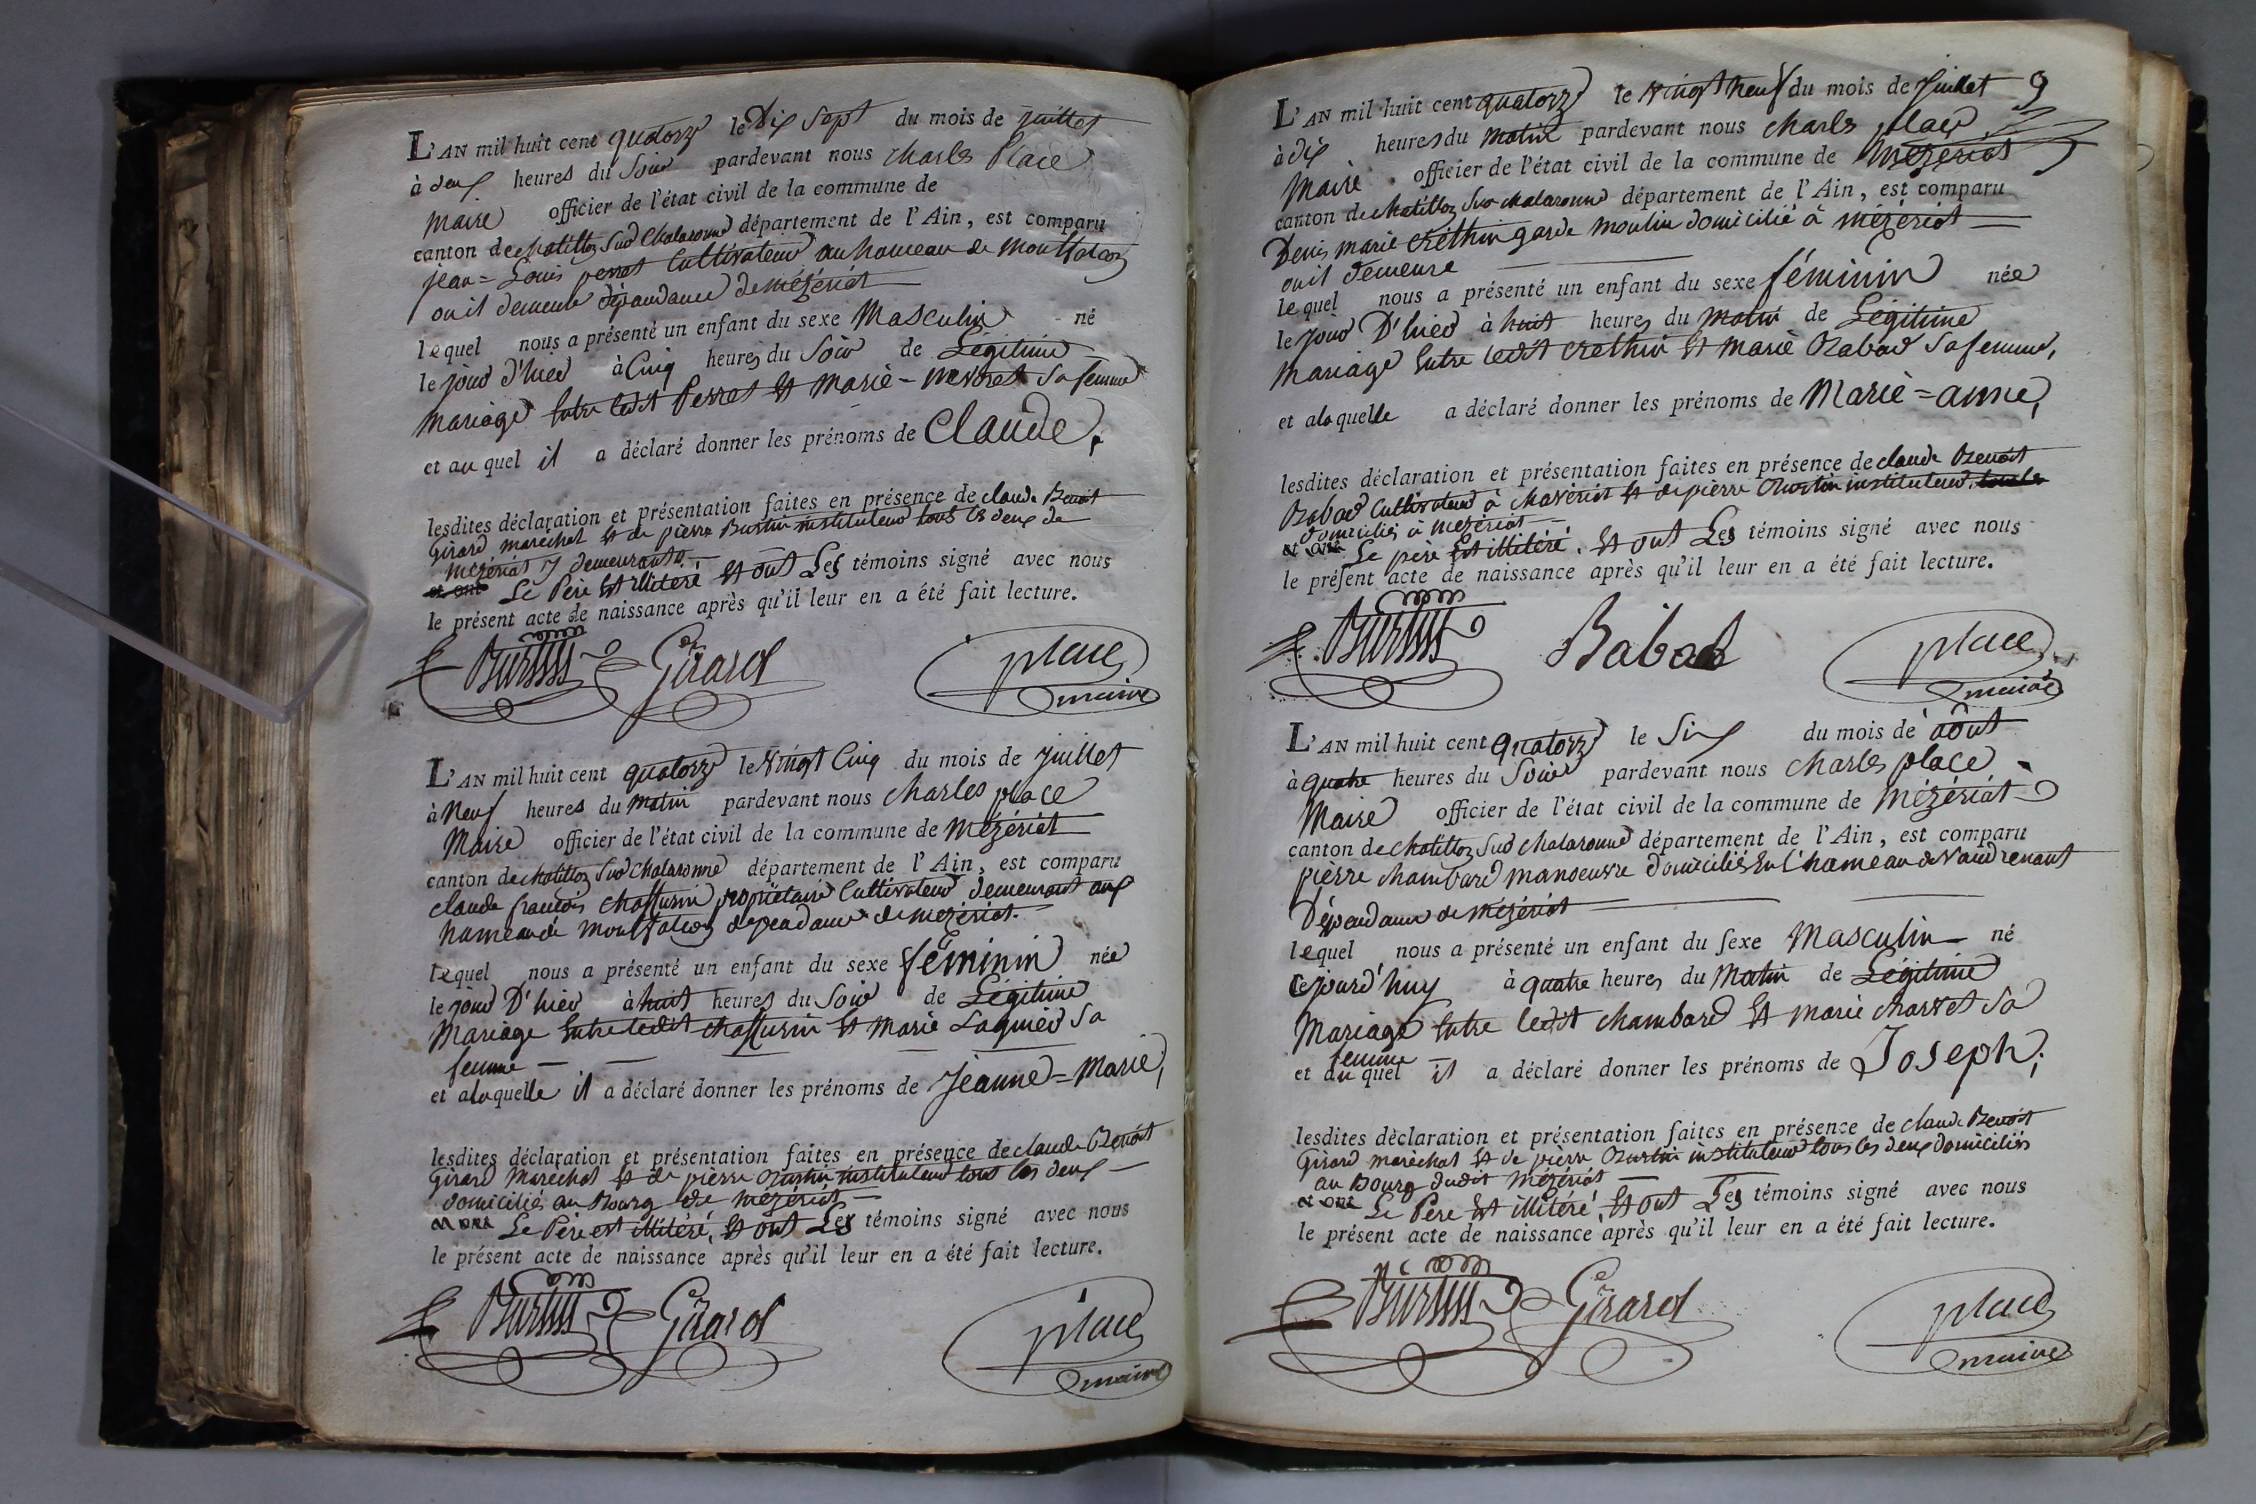 L'AN mil huit cent quatorze le Dix Sept du mois de juillet
à deux heures du Soir pardevant nous charles Place
Maire officier de l'état civil de la commune de
canton de chatillon Sur Chalaronne département de l'Ain, est comparu
jean=Louis perret Cultivateur au hameau de Montfalcon
ou il demeure dépendance de mézériat
lequel nous a présenté un enfant du sexe Masculin né
le jour d'hier à Cinq heures du Soir de Légitime
Mariage Entre ledit Perret Et Marie- sa femme
et au quel il a déclaré donner les prénoms de Claude,
lesdites déclaration et présentation faites en présence de claude Benoit
Girard maréchal Et de pierre Burtin instituteur tous les deux de
mézériat y demeurants
et ont Le Père Est illitéré Et ont Les témoins signé avec nous
le présent acte de naissance après qu'il leur en a été fait lecture.
Burtin Girard place
maire
L'AN mil huit cent quatorze le Vingt Cinq du mois de juillet
à Neuf heures du matin pardevant nous charles place
Maire officier de l'état civil de la commune de Mézériat
canton de chatillon Sur Chalaronne département de l'Ain, est comparu
claude françois chassurin propriétaire Cultivateur demeurant aux
hameau de Montfalcon dépendance de mézériat.
lequel nous a présenté un enfant du sexe féminin née
le jour D'hier à huit heures du Soir de Légitime
Mariage Entre ledit chassurin Et Marie Laguier Sa
femme
et a laquelle il a déclaré donner les prénoms de Jeanne=Marie,
lesdites déclaration et présentation faites en présence de claude Benoit
Girard Maréchal Et de pierre Burtin instituteur tous les deux
domiciliés au Bourg de Mézériat
et ont Le Père est illitéré, Et ont Les témoins signé avec nous
le présent acte de naissance après qu'il leur en a été fait lecture.
Burtin Girard place
maire
9
L'AN mil huit cent quatorze le Vingt neuf du mois de juillet
à dix heures du matin pardevant nous charles place
Maire officier de l'état civil de la commune de Mézériat
canton de chatillon Sur chalaronne département de l'Ain, est comparu
Denis marie Créthin garde moulin domicilié à mézériat
ou il demeure
lequel nous a présenté un enfant du sexe féminin née
le jour D'hier à huit heures du matin de Légitime
Mariage Entre ledit Crethin Et Marie Babad Sa femme,
et a laquelle a déclaré donner les prénoms de Marie=anne,
lesdites déclaration et présentation faites en présence de claude Benoit
Babad Cultivateur à Et de pierre Burtin instituteur
domiciliés à mézériat
et ont Le père Est illitéré. Et ont Les témoins signé avec nous
le présent acte de naissance après qu'il leur en a été fait lecture.
Burtin Babad place
maire
L'AN mil huit cent quatorze le Six du mois de août
à quatre heures du Soir pardevant nous charles place
Maire officier de l'état civil de la commune de Mézériat
canton de chatillon Sur chalaronne département de l'Ain, est comparu
pierre chambard manoeuvre domiciliés En l'hameau de Vaudrenant
Dépendance de mézériat
lequel nous a présenté un enfant du sexe Masculin né
Cejourd'huy à quatre heures du Matin de Légitime
Mariage Entre ledit chambard Et marie charvet Sa
femme
et au quel il a déclaré donner les prénoms de Joseph;
lesdites déclaration et présentation faites en présence de claude Benoit
Girard maréchal Et de pierre Burtin instituteur tous les deux domiciliés
au Bourg dudit Mézériat
et ont Le Père Est illitéré, Et ont Les témoins signé avec nous
le présent acte de naissance après qu'il leur en a été fait lecture.
Burtin Girard place
maire